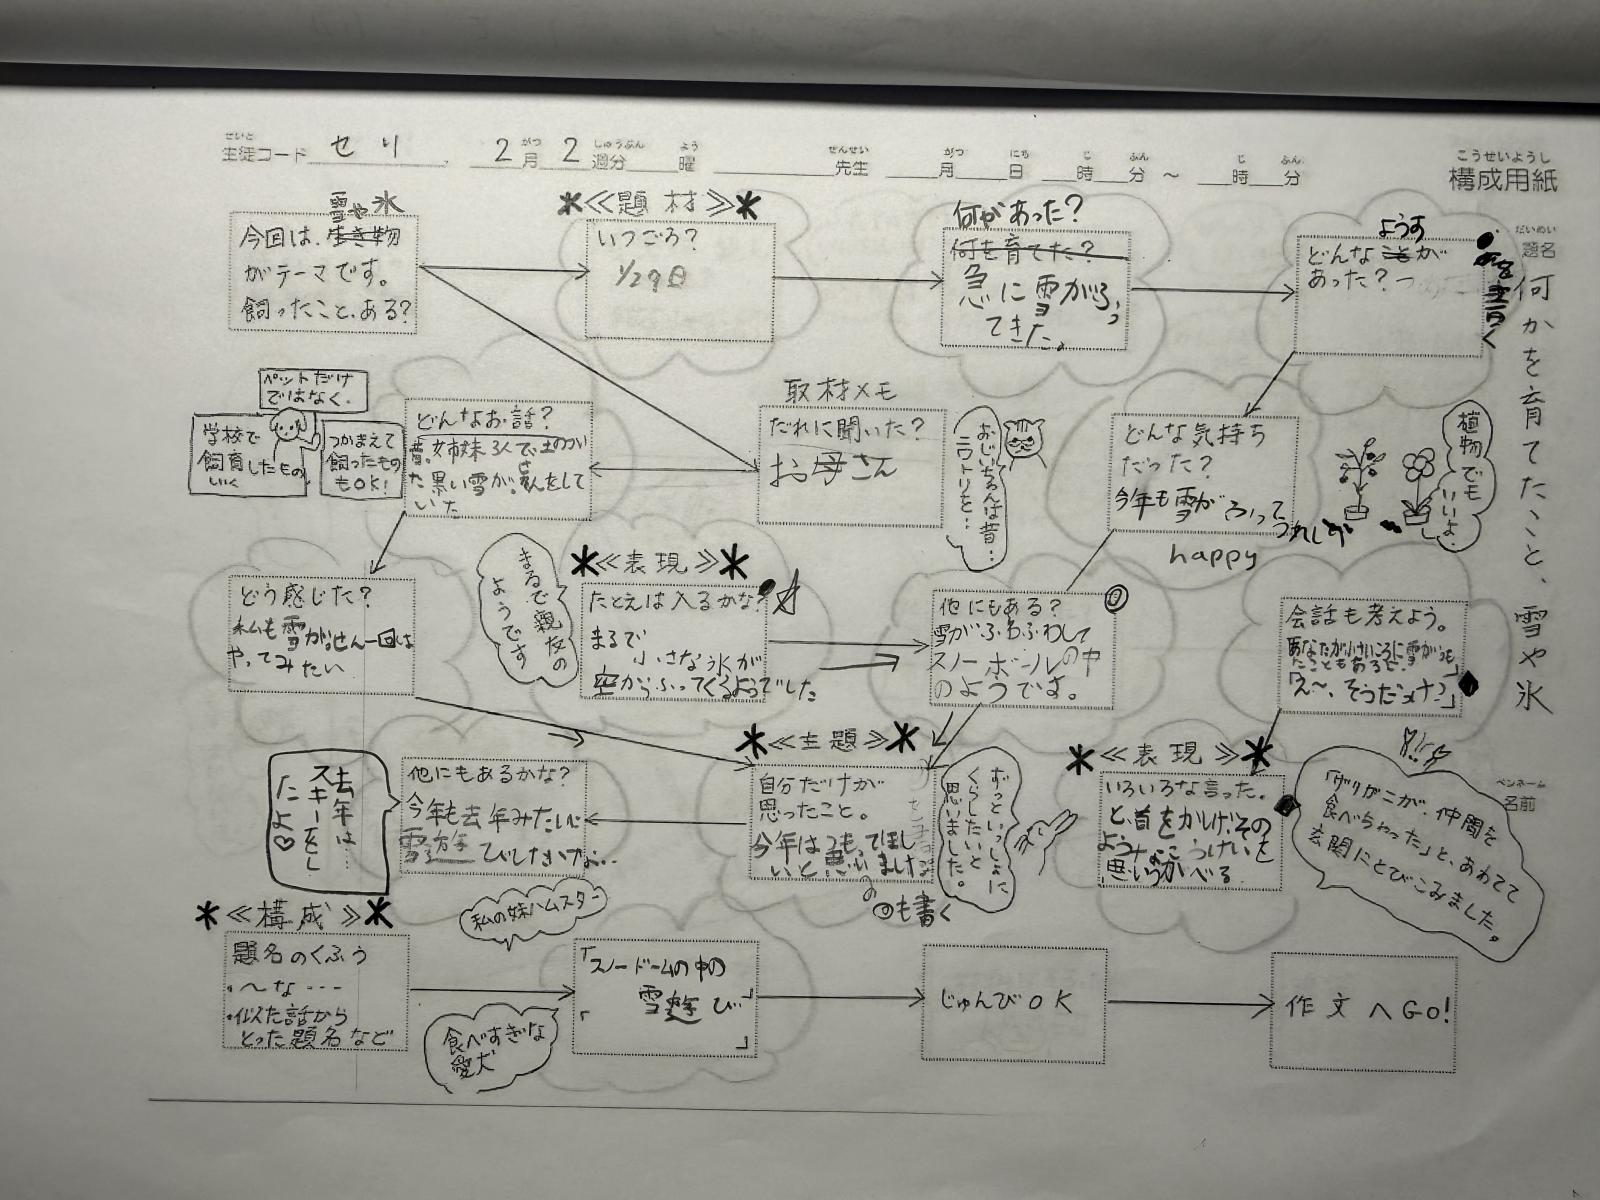 せいと がつ しゅうぶん よう せんせい がつ にち じ ふん じ ふん
生徒コード セリ 2月2週分 曜 先生 月 日 時 分 ～ 時 分
こうせいようし
構成用紙
だいめい
題名
何かを育てたこと、雪や氷
ペンネーム
名前
雪や氷
今回は、生き物
がテーマです。
飼ったこと、ある?
≪題材≫
いつごろ?
1/29日
何があった?
何を育てた?
急に雪がふっ
てきた。
ようす
どんなことが
あった?
ペットだけ
ではなく、
学校で
飼育したもの
いいく
つかまえて
飼ったもの
もOK!
どんなお話?
昔、姉妹3人で土のつい
た黒い雪が
いた
取材メモ
だれに聞いた?
お母さん
おじいちゃんは昔…
ニワトリを…
どんな気持ち
だった?
今年も雪が ふって
うれしい
happy
植物でも
いいよ。
どう感じた?
私も雪がっせん一回は
やってみたい
まるで親友の
ようです
≪表現≫
たとえは入るかな?
まるで
小さな氷が
空からふってくるようでした
他にもある?
雪がふわふわして
スノーボールの中
のようです。
会話も考えよう。
あなたが小さいころに雪がつも
たこともあるで」
「え～、そうだっけ?」
去年は…
スキーをし
たよ♡
他にもあるかな?
今年も去年みたいに
雪遊びしたいな…
≪主題≫
自分だけが
思ったこと。
今年はつもってほし
いと思いました
も書く
ずっといっしょに
くらしたいと
思いました。
≪表現≫
いろいろな言った。
と、首をかしげ、その
ような
思いうかべる
「ザリガニが、仲間を
食べちゃった」と、あわてて
玄関にとびこみました。
≪構成≫
題名のくふう
・～な・・・
・似た話から
とった題名など
私の妹ハムスター
食べすぎな
愛犬
「スノードームの中の
雪遊び」
「 」
じゅんびOK
作文へGo!